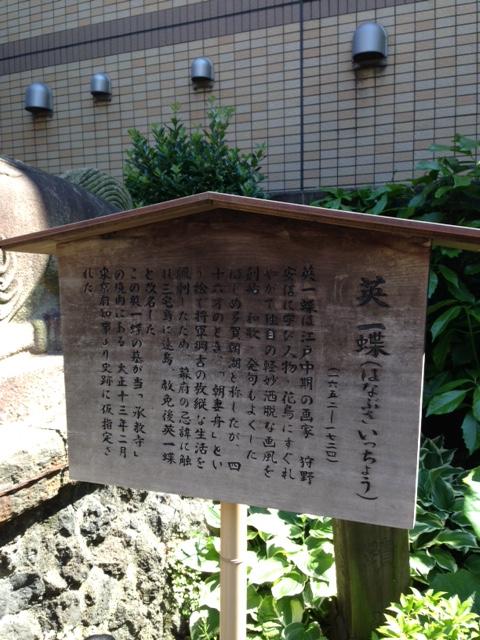 英一蝶(はなぶさいっちょう)
(一六五二ー一七二四)
英一蝶は江戸中期の画家 狩野
安信に学び人物、花鳥にすぐれ
やがて独自の軽妙洒脱な画風を
創始 和歌 発句もよくした
はじめ多賀朝湖と称したが 四
十六才のとき、「朝妻舟」とい
う絵で将軍綱吉の放縦な生活を
風刺したため 幕府の忌諱に触
れ三宅島に遠島、赦免後英一蝶
と改名した
この英一蝶の墓が当「承教寺」
の境内にある 大正十三年二月
東京府知事より史跡に仮指定さ
れた